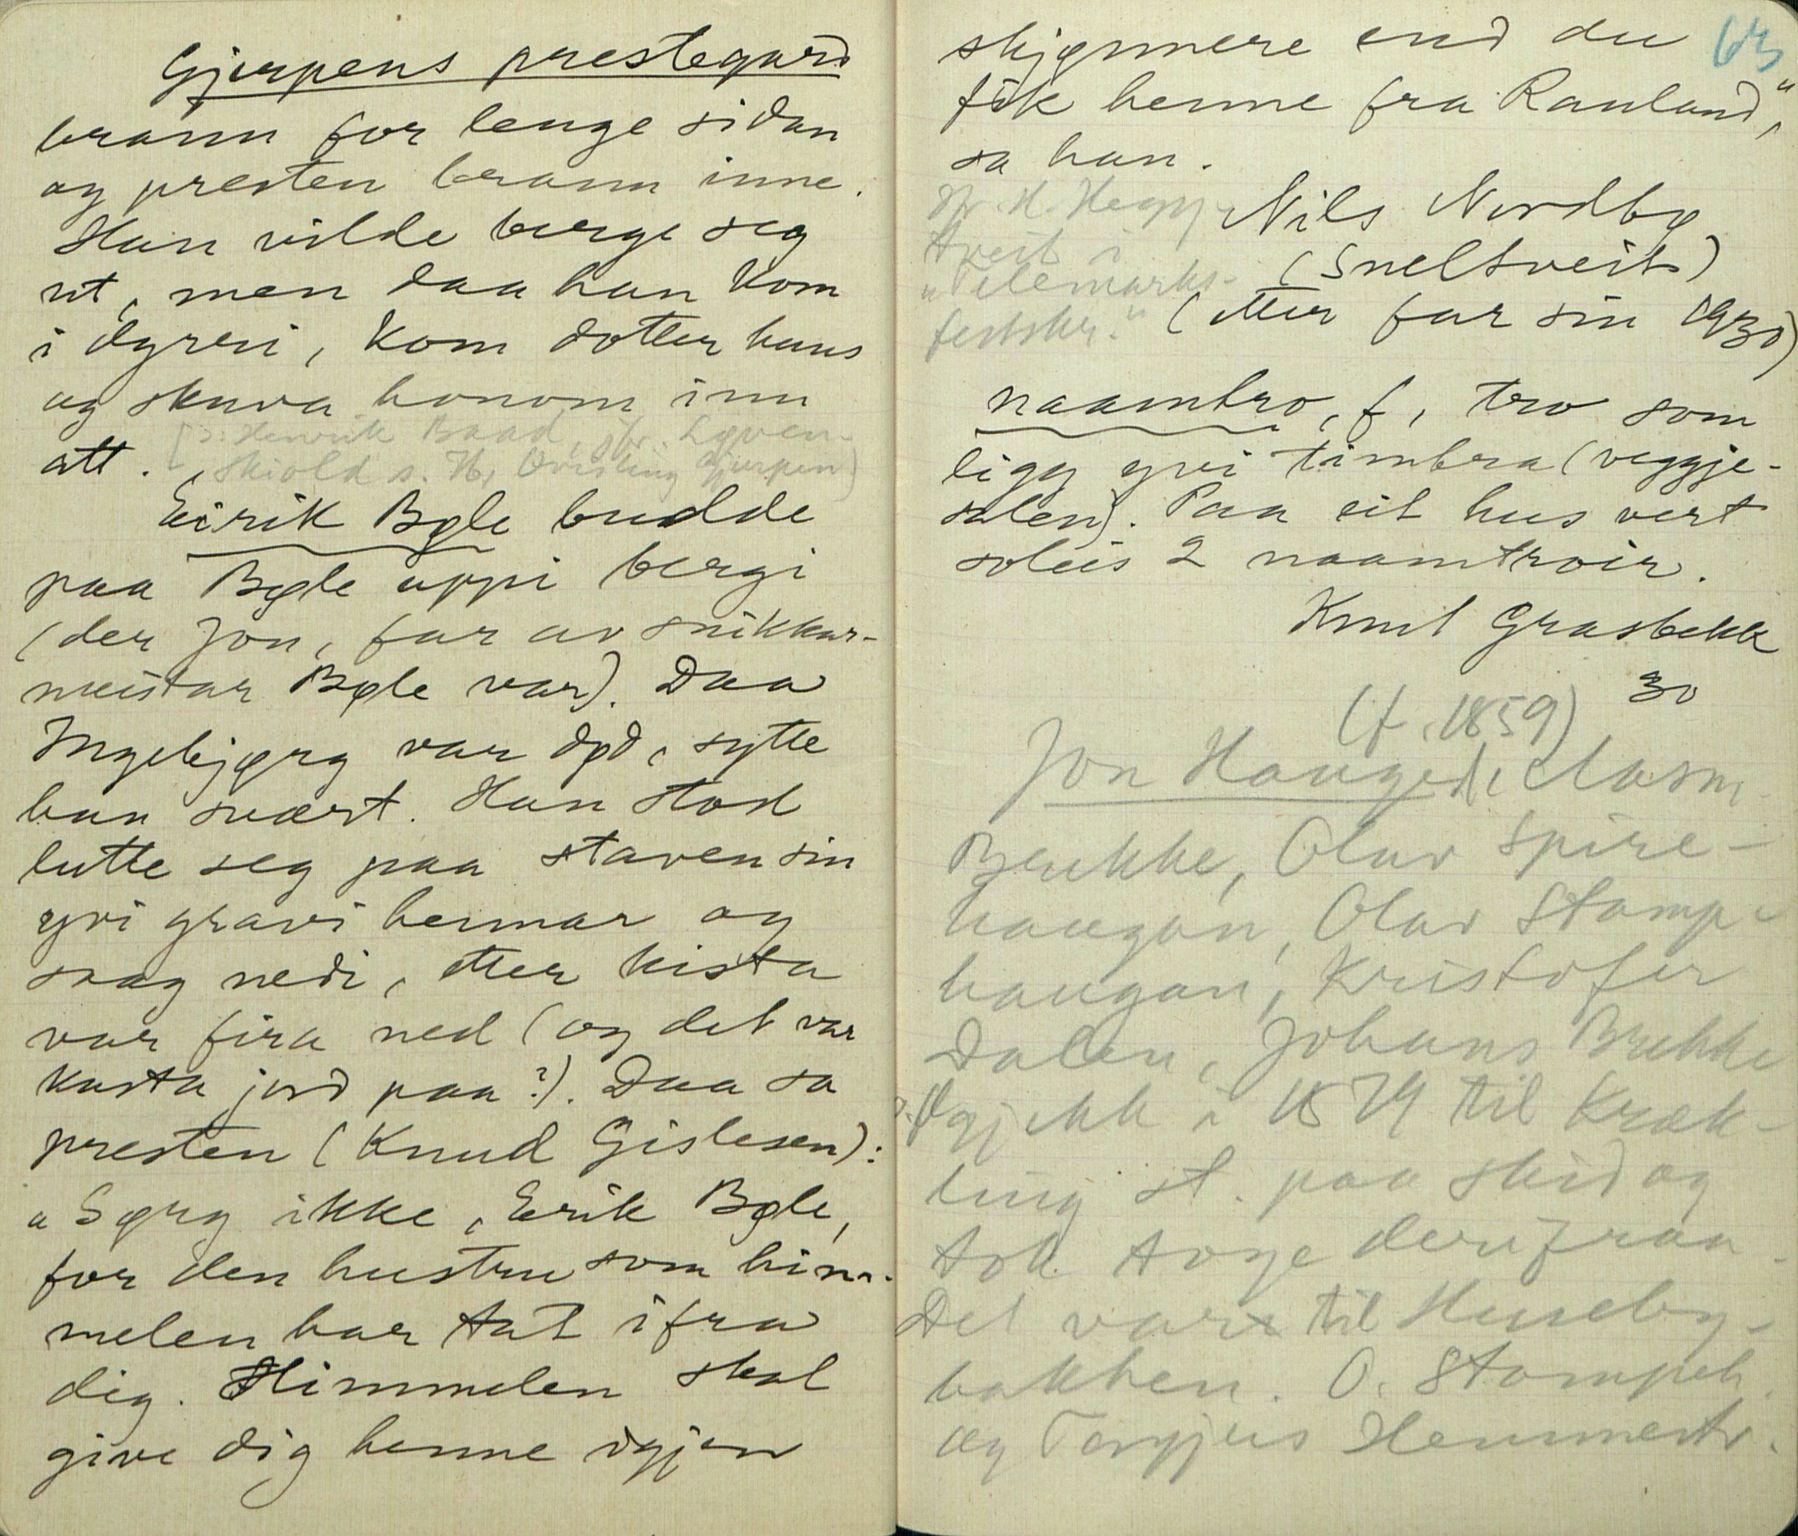 Gjerpens prestegard
brann for lenge sidan
og presten brann inne.
Han vilde berge seg
ut, men daa han kom
i dyreni, kom dotter hans
og skuva honom inn
att. [ɔ: Henrik Baad, jfr. Løven-
skiold s. H,
Eirik Bøle budde
paa Bøle uppi bergi
(der Jon, far av snikkar-
meistar Bøle var). Daa
Ingebjørg var død, sytte
han svært. Han stod
lutte seg paa staven sin
yvi gravi hennar og
saag nedi, etter kista
var fira ned (og det var
kasta jord paa?). Daa sa
presten (Knud Gislesen):
"Sørg ikke, Erik Bøle,
for den hustru som him-
melen har tat ifra
dig. Himmelen skal
give dig henne igjen
63
skjønnere end du
fik henne fra Rauland,"
sa han.
Nils Nordbø
(Sneltveit)
(etter far sin 1930)
jfr. H. Hegg
tveit i
"Telemarks-
festskr."
naamtro, f, tro som
ligg yvi timbra (veggje-
salen). Paa eit hus vert
soleis 2 naamtroir.
Knut Grasbekk
30
(f. 1859)
Jon Hauged, Aasm.
Brekke, Olav Spire-
haugan, Olav Stamp-
haugan, Kristofer
Dalen, Johans Brekke
gjekk i 1879 til Kræk-
ling st. paa skid og
tok toge derifraa.
Det var til Huseby-
bakken. O. Stampeh.
og Torgjus Hemmestv.